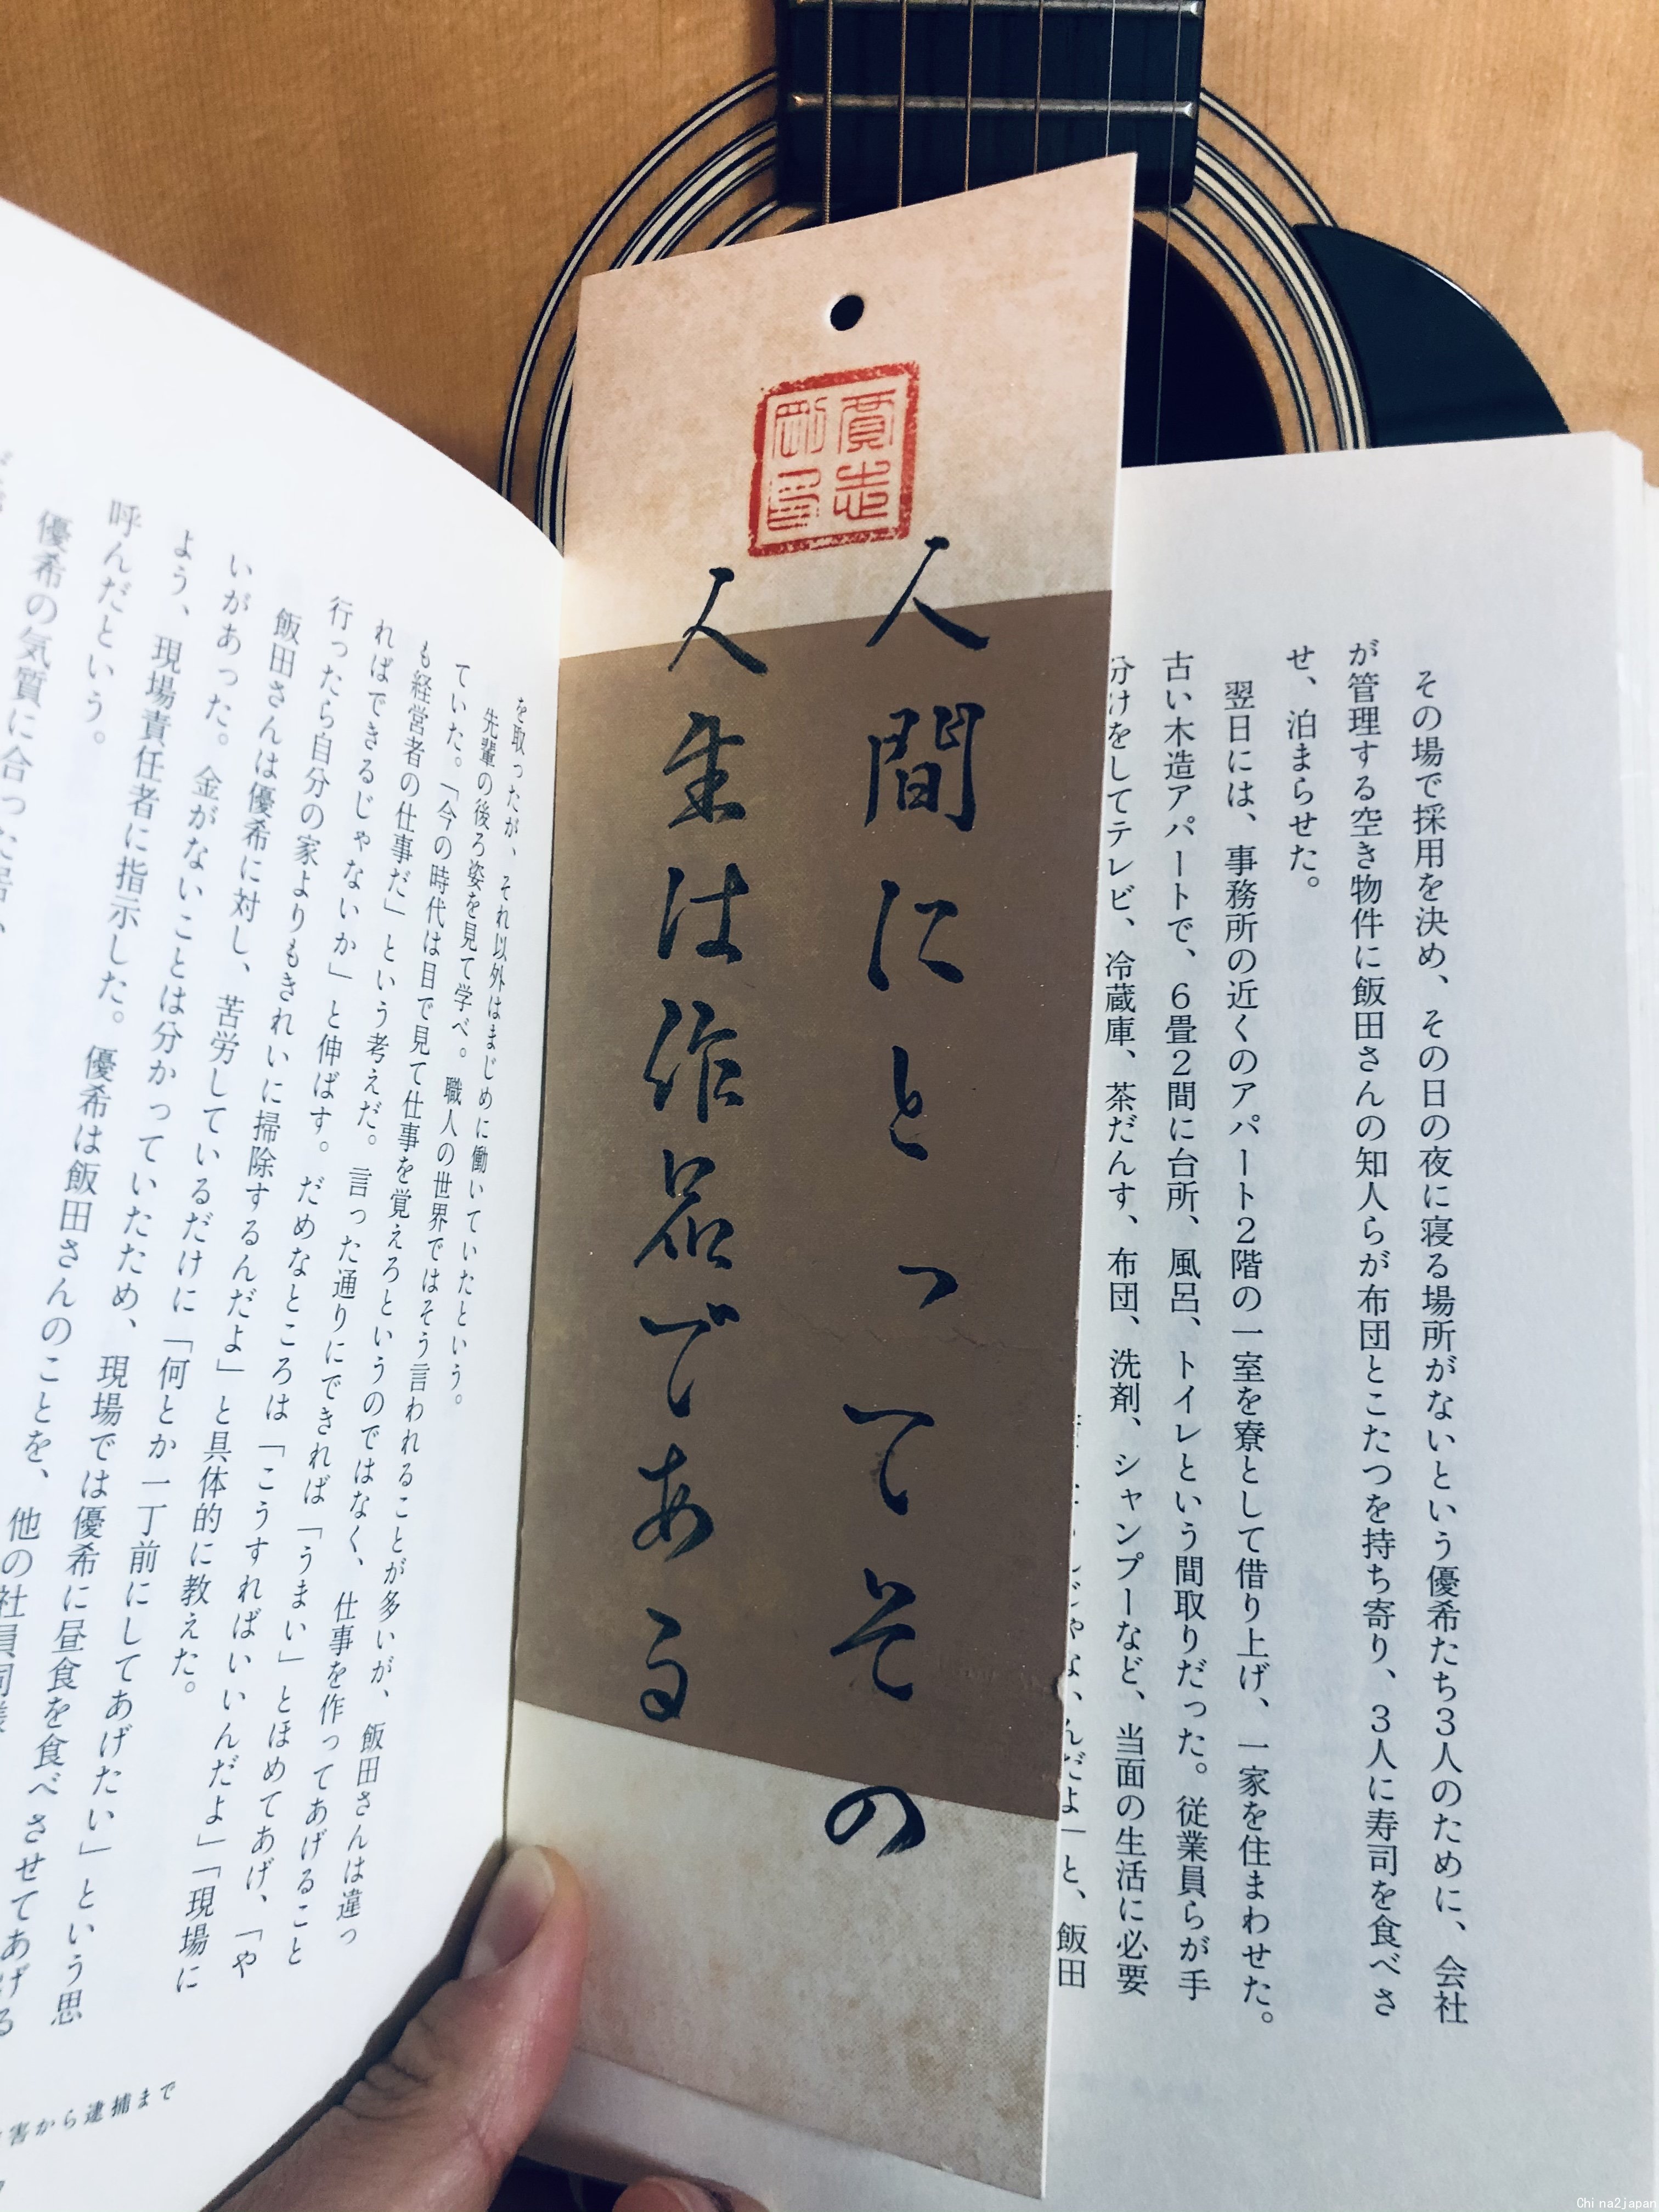 人間にとってその
人生は作品である
その場で採用を決め、その日の夜に寝る場所がないという優希たち3人のために、会社
が管理する空き物件に飯田さんの知人らが布団とこたつを持ち寄り、3人に寿司を食べさ
せ、泊まらせた。
翌日には、事務所の近くのアパート2階の一室を寮として借り上げ、一家を住まわせた。
古い木造アパートで、6畳2間に台所、風呂、トイレという間取りだった。従業員らが手
分けをしてテレビ、冷蔵庫、茶だんす、布団、洗剤、シャンプーなど、当面の生活に必要
んだよ」と、飯田
を取ったが、それ以外はまじめに働いていたという。
先輩の後ろ姿を見て学べ。職人の世界ではそう言われることが多いが、飯田さんは違っ
ていた。「今の時代は目で見て仕事を覚えろというのではなく、仕事を作ってあげること
も経営者の仕事だ」という考えだ。言った通りにできれば「うまい」とほめてあげ、「や
ればできるじゃないか」と伸ばす。だめなところは「こうすればいいんだよ」「現場に
行ったら自分の家よりもきれいに掃除するんだよ」と具体的に教えた。
飯田さんは優希に対し、苦労しているだけに「何とか一丁前にしてあげたい」という思
いがあった。金がないことは分かっていたため、現場では優希に昼食を食べさせてあげる
よう、現場責任者に指示した。優希は飯田さんのことを、他の社員同様
呼んだという。
優希の気質に合った
害から逮捕まで
China2japan